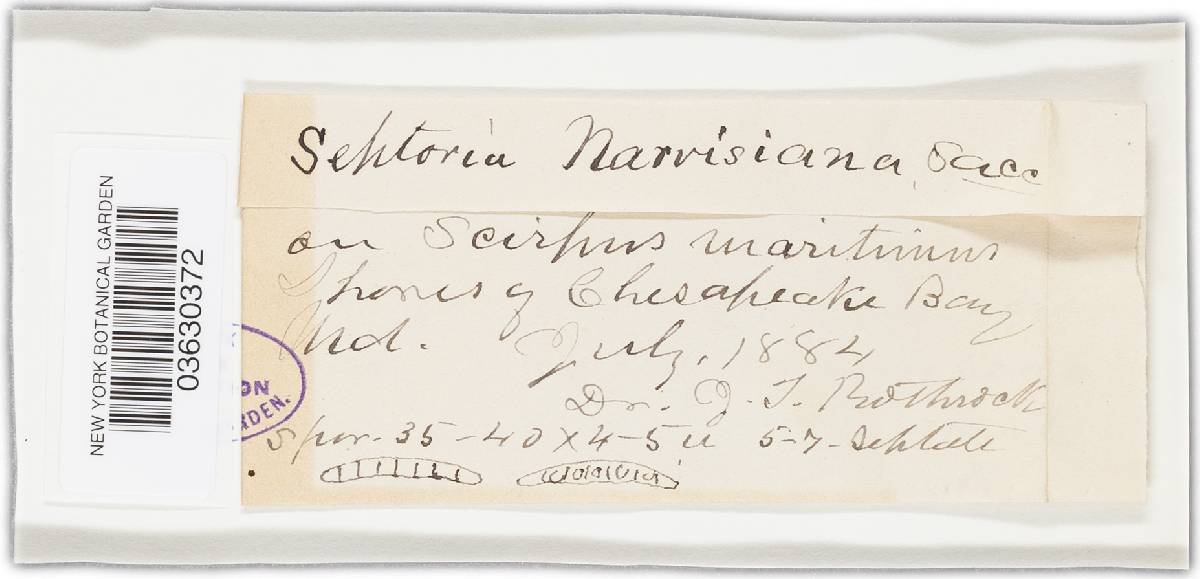 Septoria Narvisiana, Sacc.
on Scirpus maritimus
Shores of Chesapeake Bay
Md. July, 1884
Dr. J. T. Rothrock
Spor. 35-40 x 4-5 u 5-7-septate
NEW YORK BOTANICAL GARDEN
03630372